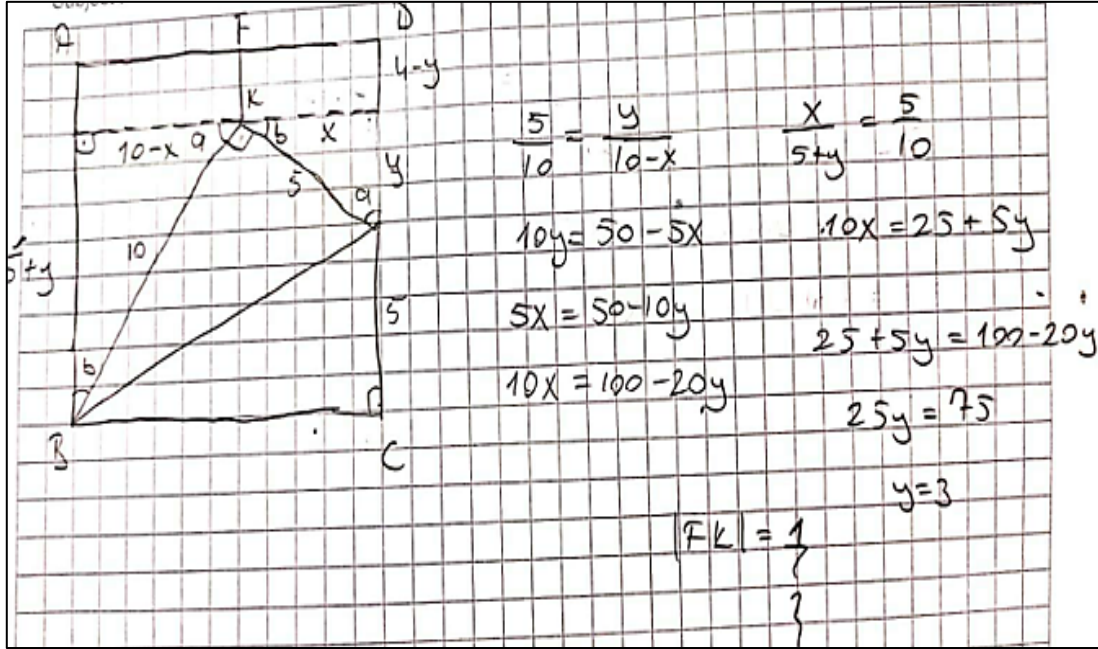 A F D
4-y
K
10-x a b x
5 y
a
10
5+y
5
b
B C
5/10 = y/10-x
10y = 50 - 5x
5x = 50-10y
10x = 100 - 20y
x/5+y = 5/10
10x = 25 + 5y
25 + 5y = 100 - 20y
25y = 75
y=3
|FK| = 1